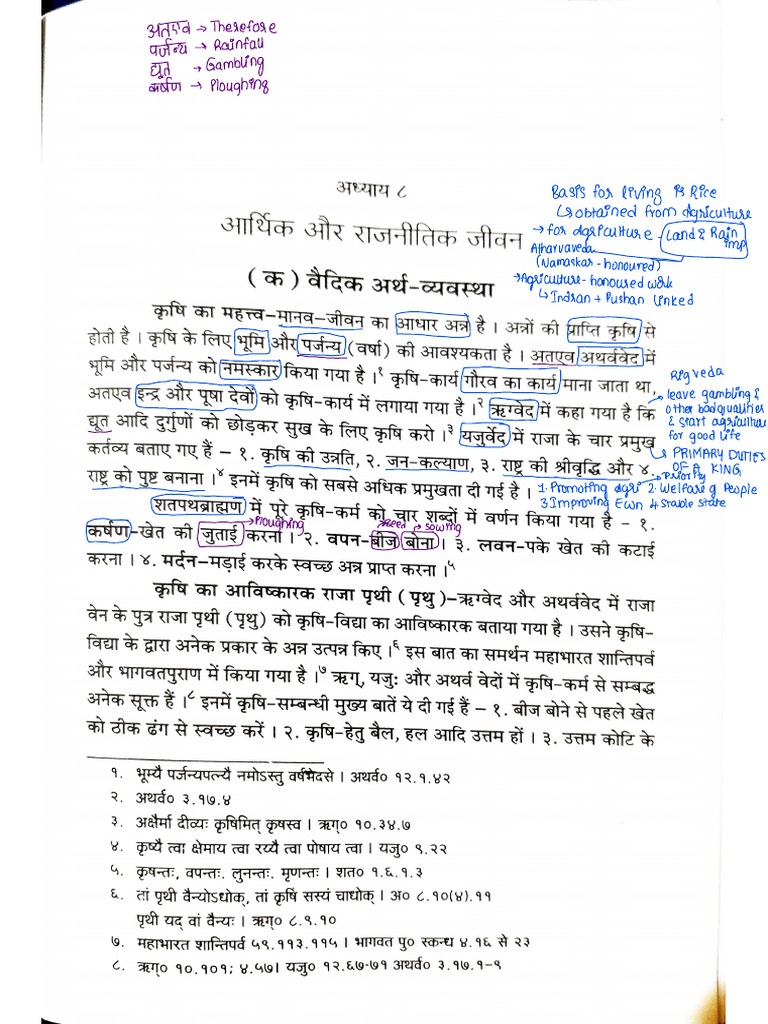 अतएव → Therefore
पर्जन्य → Rainfall
द्यूत → Gambling
कर्षण → Ploughing
अध्याय ८
आर्थिक और राजनीतिक जीवन
( क ) वैदिक अर्थ-व्यवस्था
Basis for living is Rice
↳ obtained from agriculture
→ for agriculture - Land & Rain imp
Atharvaveda
(Namaskar - honoured)
→ Agriculture - honoured work
↳ Indran + Pushan linked
कृषि का महत्त्व–मानव–जीवन का आधार अन्न है । अन्नों की प्राप्ति कृषि से
होती है । कृषि के लिए भूमि और पर्जन्य (वर्षा) की आवश्यकता है । अतएव अथर्ववेद में
भूमि और पर्जन्य को नमस्कार किया गया है ।१ कृषि-कार्य गौरव का कार्य माना जाता था,
अतएव इन्द्र और पूषा देवों को कृषि-कार्य में लगाया गया है ।२ ऋग्वेद में कहा गया है कि
द्यूत आदि दुर्गुणों को छोड़कर सुख के लिए कृषि करो ।३ यजुर्वेद में राजा के चार प्रमुख
कर्तव्य बताए गए हैं – १. कृषि की उन्नति, २. जन-कल्याण, ३. राष्ट्र की श्रीवृद्धि और ४.
राष्ट्र को पुष्ट बनाना ।४ इनमें कृषि को सबसे अधिक प्रमुखता दी गई है ।
Rigveda
leave gambling &
other bad qualities
& start agriculture
for good life
↳ PRIMARY DUTIES
OF A KING
→ Priority
1. Promoting agri 2. Welfare of People
3 Improving Ewn 4. Stable state
शतपथब्राह्मण में पूरे कृषि-कर्म को चार शब्दों में वर्णन किया गया है – १.
Ploughing
seed → sowing
कर्षण-खेत की जुताई करना । २. वपन-बीज बोना । ३. लवन-पके खेत की कटाई
करना । ४. मर्दन–मड़ाई करके स्वच्छ अन्न प्राप्त करना ।५
कृषि का आविष्कारक राजा पृथी ( पृथु )–ऋग्वेद और अथर्ववेद में राजा
वेन के पुत्र राजा पृथी (पृथु) को कृषि-विद्या का आविष्कारक बताया गया है । उसने कृषि-
विद्या के द्वारा अनेक प्रकार के अन्न उत्पन्न किए ।६ इस बात का समर्थन महाभारत शान्तिपर्व
और भागवतपुराण में किया गया है ।७ ऋग्, यजुः और अथर्व वेदों में कृषि-कर्म से सम्बद्ध
अनेक सूक्त हैं ।८ इनमें कृषि-सम्बन्धी मुख्य बातें ये दी गई हैं – १. बीज बोने से पहले खेत
को ठीक ढंग से स्वच्छ करें । २. कृषि-हेतु बैल, हल आदि उत्तम हों । ३. उत्तम कोटि के
१. भूम्यै पर्जन्यपत्न्यै नमोऽस्तु वर्षमेदसे । अथर्व० १२.१.४२
२. अथर्व० ३.१७.४
३. अक्षैर्मा दीव्यः कृषिमित् कृषस्व । ऋग्० १०.३४.७
४. कृष्यै त्वा क्षेमाय त्वा रय्यै त्वा पोषाय त्वा । यजु० ९.२२
५. कृषन्तः, वपन्तः. लुनन्तः. मृणन्तः । शत० १.६.१.३
६. तां पृथी वैन्योऽधोक्, तां कृषिं सस्यं चाधोक् । अ० ८.१०(४).११
पृथी यद् वां वैन्यः । ऋग्० ८.९.१०
७. महाभारत शान्तिपर्व ५९.११३.११५ । भागवत पु० स्कन्ध ४.१६ से २३
८. ऋग्० १०.१०१; ४.५७। यजु० १२.६७-७१ अथर्व० ३.१७.१-९